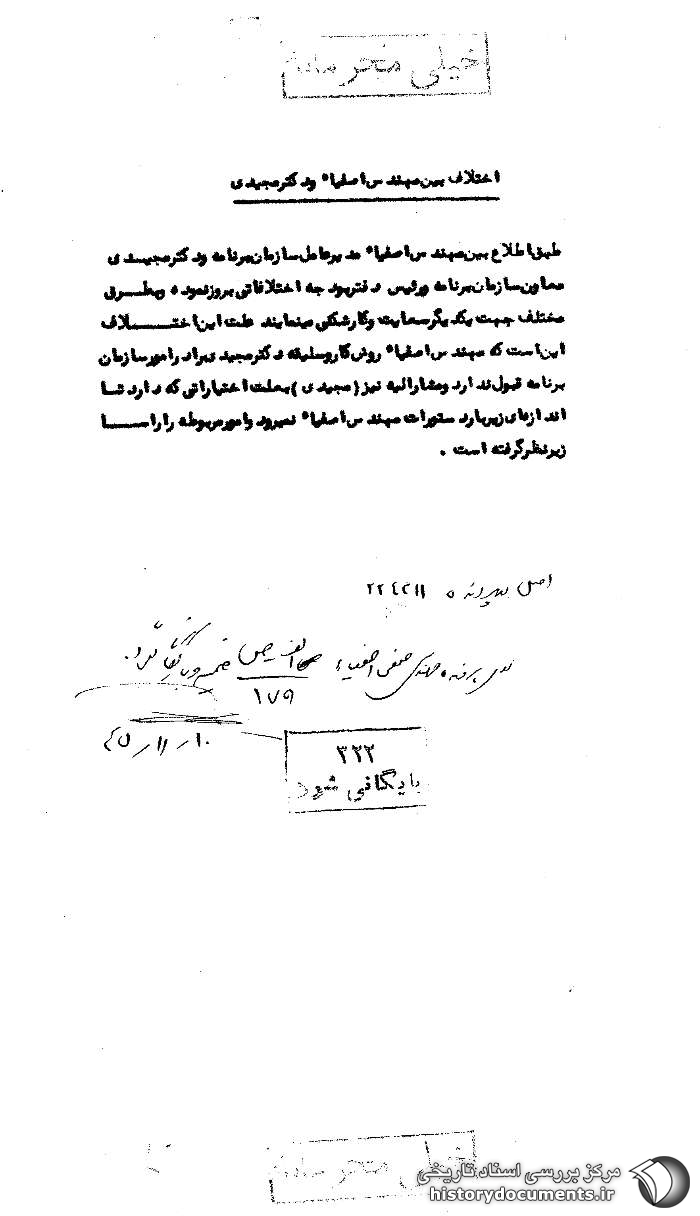 خیلی محرمانه
اختلاف بین مهندس اصفیاء و دکتر مجیدی
طبق اطلاع بین مهندس اصفیاء مدیرعامل سازمان برنامه و دکتر مجیدی
معاون سازمان برنامه و رئیس دفتر بودجه اختلافاتی بروز نموده و بطرق
مختلف جهت یکدیگر سعایت و کارشکنی مینمایند علت این اختلاف
این است که مهندس اصفیاء روش کار و سلیقه دکتر مجیدی را در امور سازمان
برنامه قبول ندارد و مشارالیه نیز (مجیدی) بعلت اختیاراتی که دارد تا
اندازه‌ای زیر بار دستورات مهندس اصفیاء نمیرود و امور مربوطه را راسا
زیر نظر گرفته است .
اصل در پرونده ۲۲۴۲۱۱
مهندس صفی اصفیاء
۱۷۹
۴۵/۱۱/۱۰
۳۲۲
بایگانی شود
خیلی محرمانه
مرکز بررسی اسناد تاریخی
historydocuments.ir